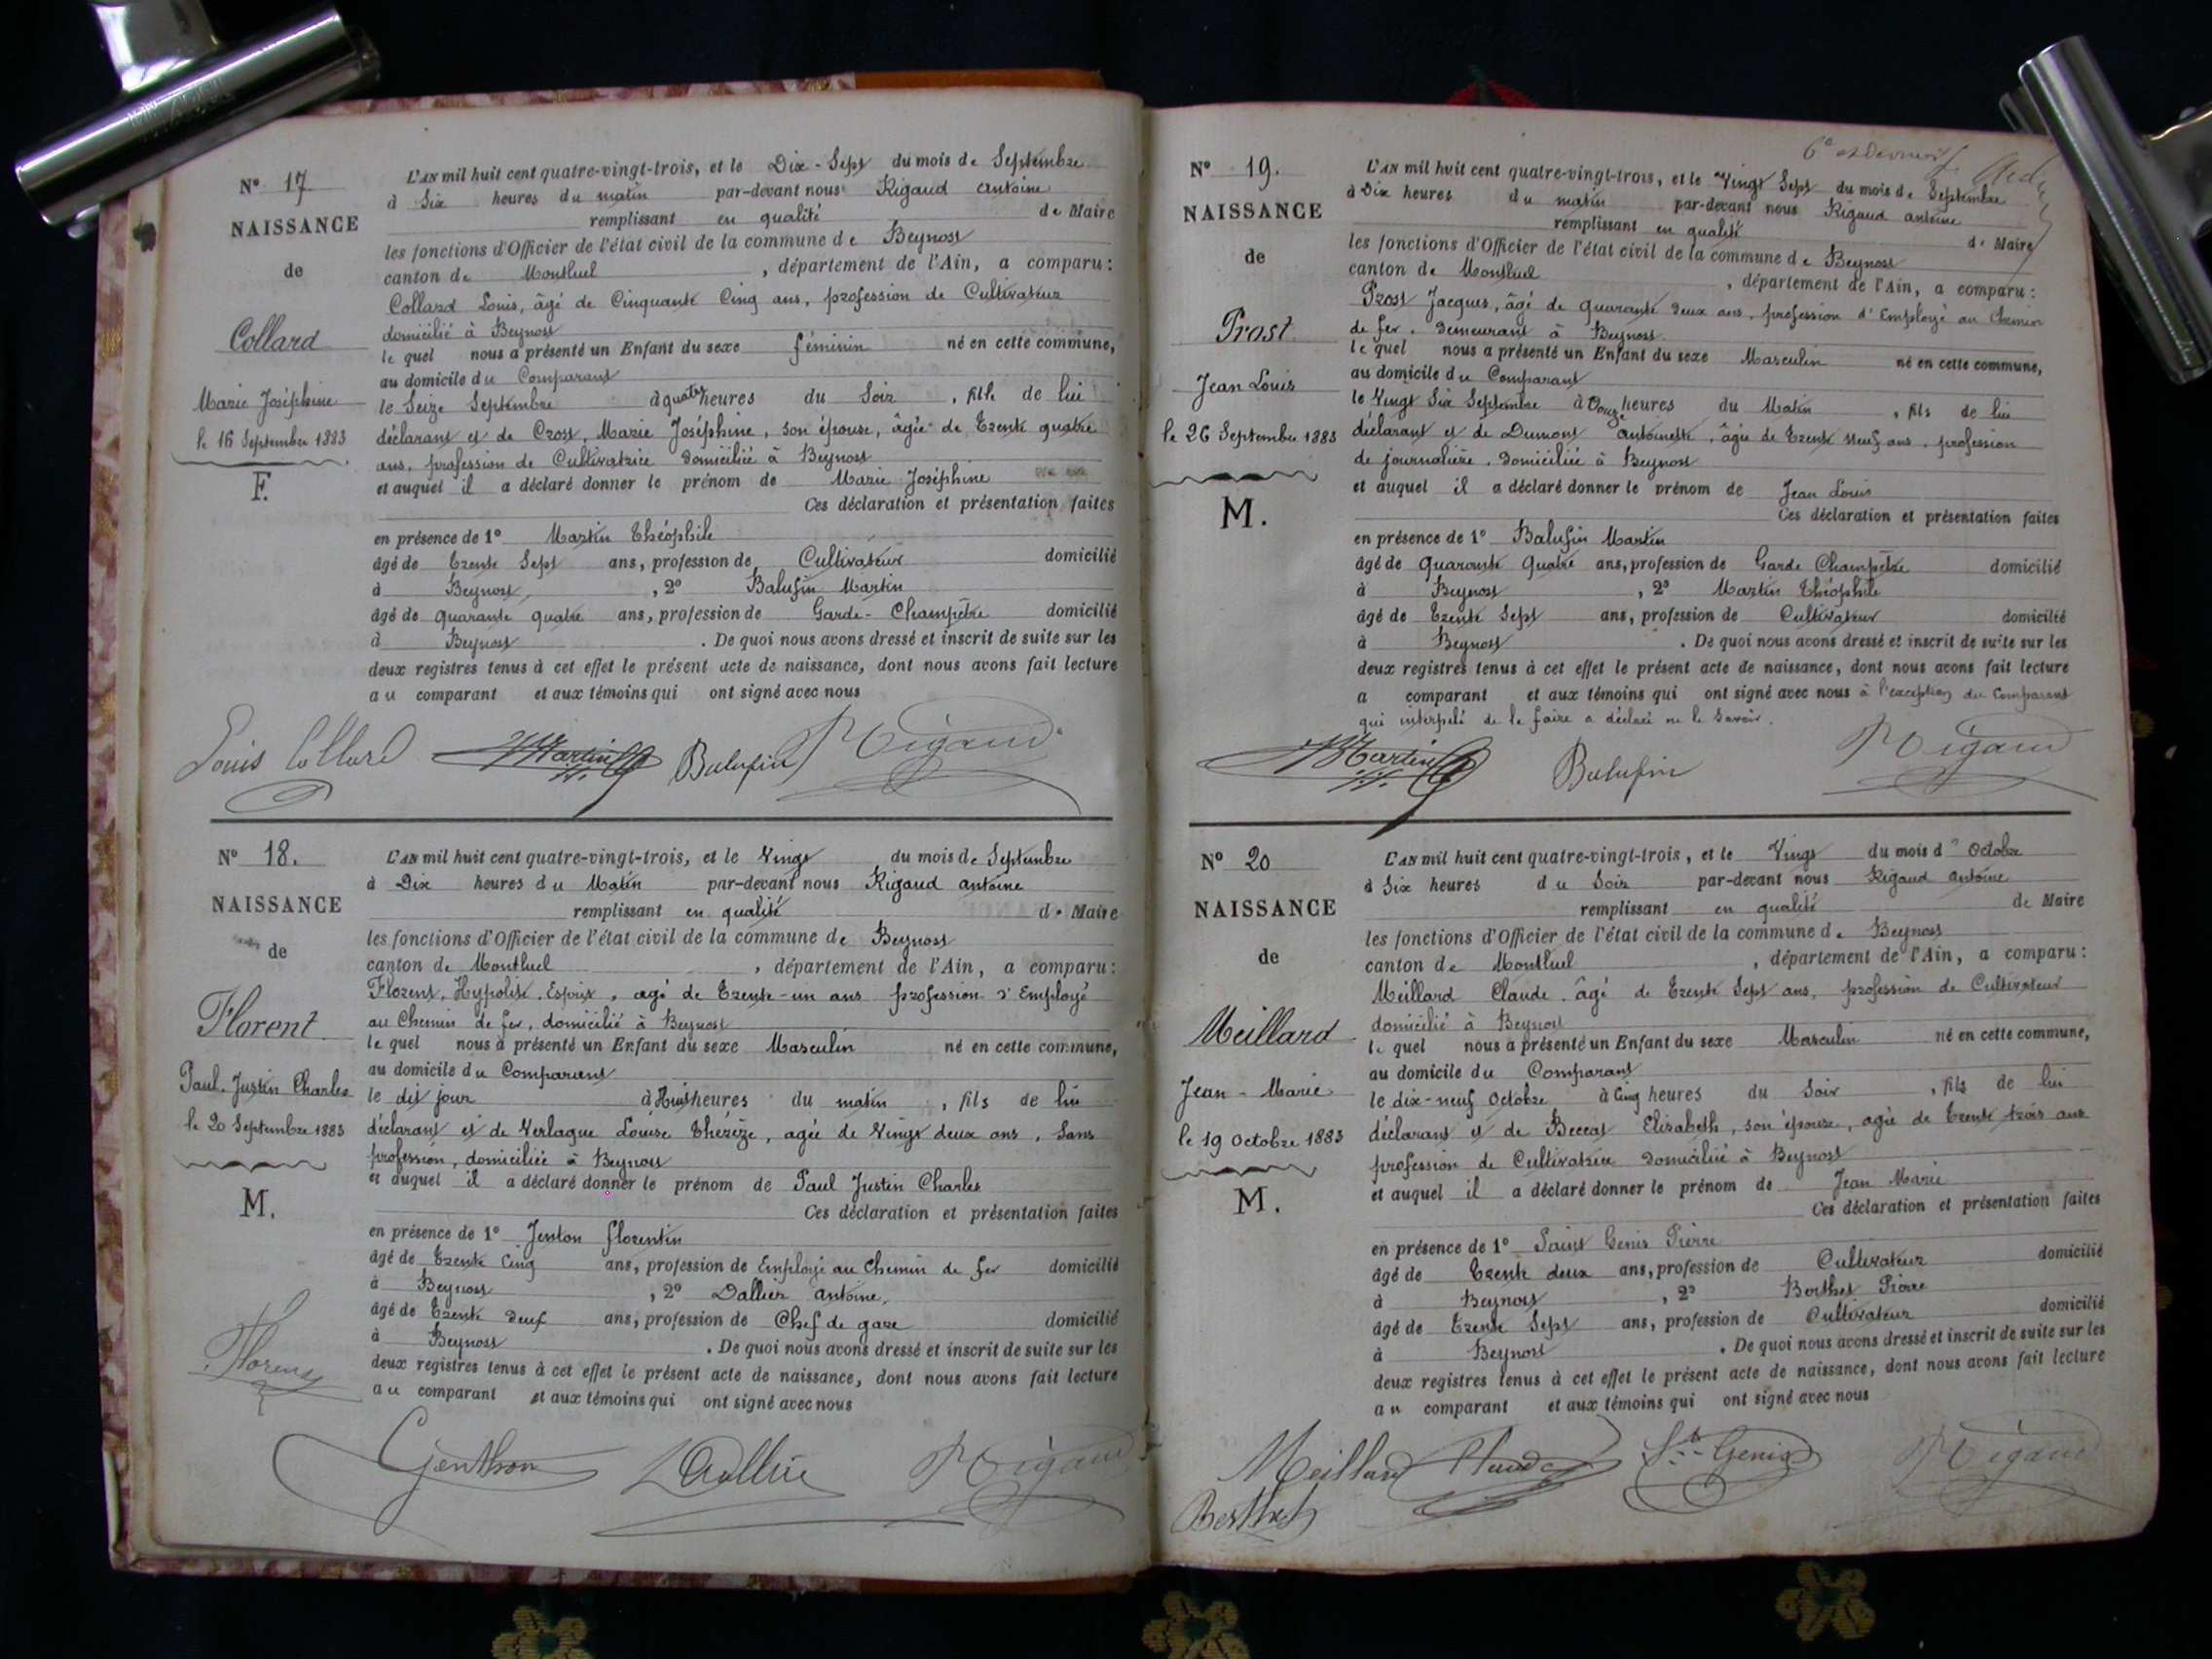 N° 17
NAISSANCE
de
Collard
Marie Joséphine
le 16 Septembre 1883
F.
L'AN mil huit cent quatre-vingt-trois, et le Dix-Sept du mois de Septembre
à Six heures du matin par-devant nous Rigaud antoine
remplissant en qualité de Maire
les fonctions d'Officier de l'état civil de la commune de Beynost
canton de Montluel, département de l'Ain, a comparu:
Collard Louis, âgé de Cinquante Cinq ans, profession de Cultivateur
domicilié à Beynost
le quel nous a présenté un Enfant du sexe féminin né en cette commune,
au domicile du Comparant
le Seize Septembre à quatre heures du Soir, fille de lui
déclarant et de Cross, Marie Joséphine, son épouse, âgée de Trente quatre
ans, profession de Cultivatrice domiciliée à Beynost
et auquel il a déclaré donner le prénom de Marie Joséphine
Ces déclaration et présentation faites
en présence de 1° Martin Théophile
âgé de Trente Sept ans, profession de Cultivateur domicilié
à Beynost, 2° Balufin Martin
âgé de quarante quatre ans, profession de Garde-Champêtre domicilié
à Beynost. De quoi nous avons dressé et inscrit de suite sur les
deux registres tenus à cet effet le présent acte de naissance, dont nous avons fait lecture
au comparant et aux témoins qui ont signé avec nous
Louis Collard Martin Balufin Rigaud
N° 18.
NAISSANCE
de
Florent
Paul Justin Charles
le 20 Septembre 1883
M.
L'AN mil huit cent quatre-vingt-trois, et le Vingt du mois de Septembre
à Dix heures du Matin par-devant nous Rigaud antoine
remplissant en qualité de Maire
les fonctions d'Officier de l'état civil de la commune de Beynost
canton de Montluel, département de l'Ain, a comparu:
Florent, Hypolite, Esprit, agé de Trente-un ans profession d'Employé
au Chemin de fer, domicilié à Beynost
le quel nous a présenté un Enfant du sexe Masculin né en cette commune,
au domicile du Comparant
le dit jour à Huit heures du matin, fils de lui
déclarant et de Verlague Louise Thérèze, agée de Vingt deux ans, Sans
profession, domiciliée à Beynost
et auquel il a déclaré donner le prénom de Paul Justin Charles
Ces déclaration et présentation faites
en présence de 1° Jenton florentin
âgé de Trente Cinq ans, profession de Employé au Chemin de fer domicilié
à Beynost, 2° Dallier antoine,
âgé de Trente neuf ans, profession de Chef de gare domicilié
à Beynost. De quoi nous avons dressé et inscrit de suite sur les
deux registres tenus à cet effet le présent acte de naissance, dont nous avons fait lecture
au comparant et aux témoins qui ont signé avec nous
Florent
Genthon Dallier Rigaud
6e et dernier
N° 19.
NAISSANCE
de
Prost
Jean Louis
le 26 Septembre 1883
M.
L'AN mil huit cent quatre-vingt-trois, et le Vingt Sept du mois de Septembre
à Dix heures du matin par-devant nous Rigaud antoine
remplissant en qualité de Maire
les fonctions d'Officier de l'état civil de la commune de Beynost
canton de Montluel, département de l'Ain, a comparu:
Prost Jacques, âgé de quarante deux ans, profession d'Employé au Chemin
de fer, demeurant à Beynost.
le quel nous a présenté un Enfant du sexe Masculin né en cette commune,
au domicile du Comparant
le Vingt Six Septembre à Onze heures du Matin, fils de lui
déclarant et de Dumont antoinette, âgée de Trente neuf ans, profession
de journalière, domiciliée à Beynost
et auquel il a déclaré donner le prénom de Jean Louis
Ces déclaration et présentation faites
en présence de 1° Balufin Martin
âgé de quarante quatre ans, profession de Garde Champêtre domicilié
à Beynost, 2° Martin Théophile
âgé de Trente Sept ans, profession de Cultivateur domicilié
à Beynost. De quoi nous avons dressé et inscrit de suite sur les
deux registres tenus à cet effet le présent acte de naissance, dont nous avons fait lecture
a comparant et aux témoins qui ont signé avec nous à l'exception du Comparant
qui interpelé de le faire a déclaré ne le Savoir.
Martin Balufin Rigaud
N° 20
NAISSANCE
de
Meillard
Jean-Marie
le 19 Octobre 1883
M.
L'AN mil huit cent quatre-vingt-trois, et le Vingt du mois d'Octobre
à Six heures du Soir par-devant nous Rigaud antoine
remplissant en qualité de Maire
les fonctions d'Officier de l'état civil de la commune de Beynost
canton de Montluel, département de l'Ain, a comparu:
Meillard Claude, âgé de Trente Sept ans, profession de Cultivateur
domicilié à Beynost
le quel nous a présenté un Enfant du sexe Masculin né en cette commune,
au domicile du Comparant
le dix-neuf Octobre à Cinq heures du Soir, fils de lui
déclarant et de Beccat Elisabeth, son épouse, agée de Trente trois ans
profession de Cultivatrice domiciliée à Beynost
et auquel il a déclaré donner le prénom de Jean Marie
Ces déclaration et présentation faites
en présence de 1° Saint Genis Pierre
âgé de Trente deux ans, profession de Cultivateur domicilié
à Beynost, 2° Berthet Pierre
âgé de Trente Sept ans, profession de Cultivateur domicilié
à Beynost. De quoi nous avons dressé et inscrit de suite sur les
deux registres tenus à cet effet le présent acte de naissance, dont nous avons fait lecture
au comparant et aux témoins qui ont signé avec nous
Meillard Claude St-Genis Rigaud
Berthet